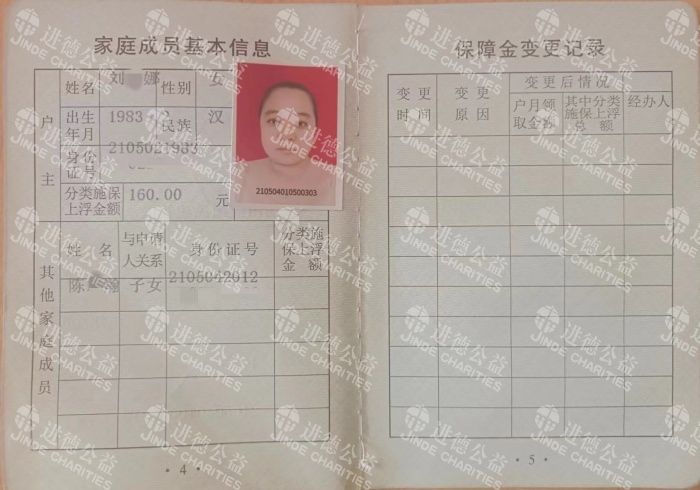 家庭成员基本信息
户主
姓名 刘 娜 性别 女
出生年月 1983 民族 汉
身份证号 2105021983
分类施保上浮金额 160.00 元
210504010500303
其他家庭成员
姓 名 与申请人关系 身份证号 分类施保上浮金 额
陈 子女 2105042012
· 4 ·
保障金变更记录
变 更 时 间 变 更 原 因 变 更 后 情 况 经办人
户月领取金额 其中分类施保上浮总 额
· 5 ·
进德公益
JINDE CHARITIES